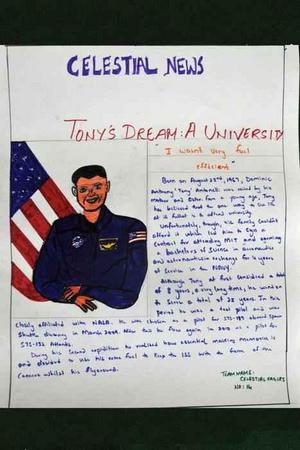 CELESTIAL NEWS
TONY'S DREAM: A UNIVERSITY
"I wasn't very fuel
efficient"
Born on August 23rd, 1967, Dominic
Anthony 'Tony' Antonelli was raised by his
mother and
has believed that
is to attend university.
Unfortunately, though, his family couldn't
afford it which led him to sign a
Contract for attending MIT and earning
a bachelors of Science in Aeronautics
and astronautics in exchange for 4 years
of Service in the NAVY.
Although Tony at first considered a total
of 8 years, a very long time, he wound up
to Serve a total of 22 years. In this
period he was a test pilot and was
closely affiliated with NASA. He was chosen as a pilot for STS-119 aboard Space
Shuttle discovery in March 2009. After this he flew again in 2010 as a pilot for
STS-132 Atlantis.
During his Second expedition he realized how essential making memories is
and decided to use his extra fuel to keep the ISS with in the frame of the
Camera whilst his flyaround.
TEAM NAME:
CELESTIAL EAGLES